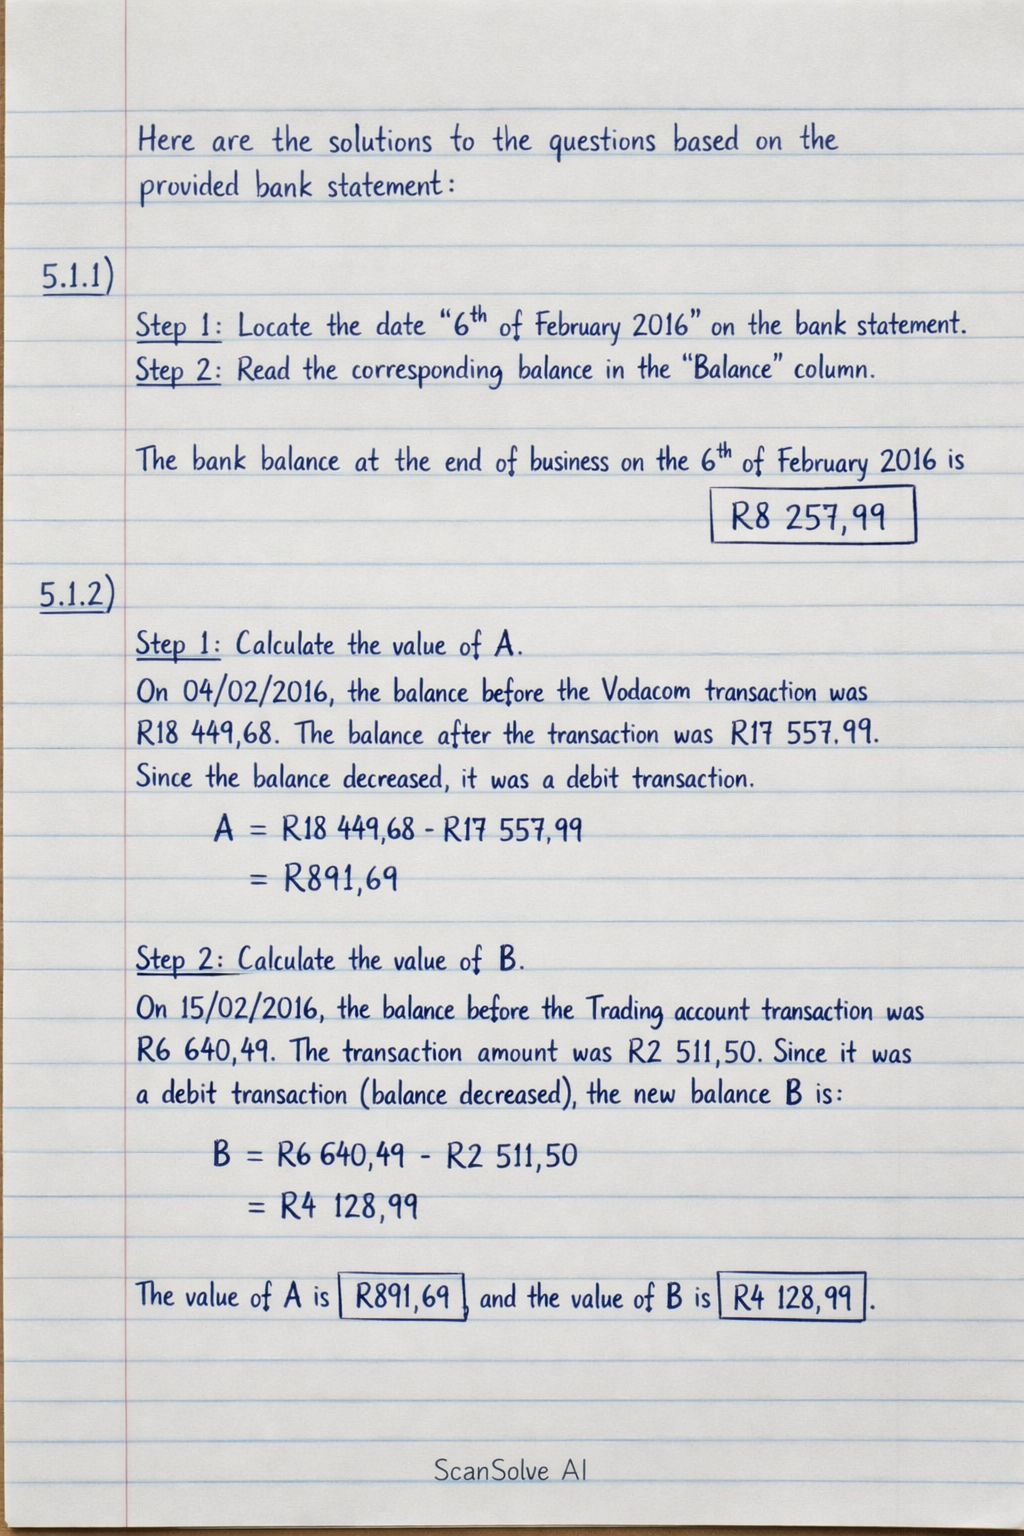 Here are the solutions to the questions based on the
provided bank statement:
5.1.1)
Step 1: Locate the date “6th of February 2016” on the bank statement.
Step 2: Read the corresponding balance in the “Balance” column.
The bank balance at the end of business on the 6th of February 2016 is
R8 257,99
5.1.2)
Step 1: Calculate the value of A.
On 04/02/2016, the balance before the Vodacom transaction was
R18 449,68. The balance after the transaction was R17 557.99.
Since the balance decreased, it was a debit transaction.
A = R18 449,68 - R17 557,99
= R891,69
Step 2: Calculate the value of B.
On 15/02/2016, the balance before the Trading account transaction was
R6 640,49. The transaction amount was R2 511,50. Since it was
a debit transaction (balance decreased), the new balance B is:
B = R6 640,49 - R2 511,50
= R4 128,99
The value of A is R891,69, and the value of B is R4 128,99.
ScanSolve AI